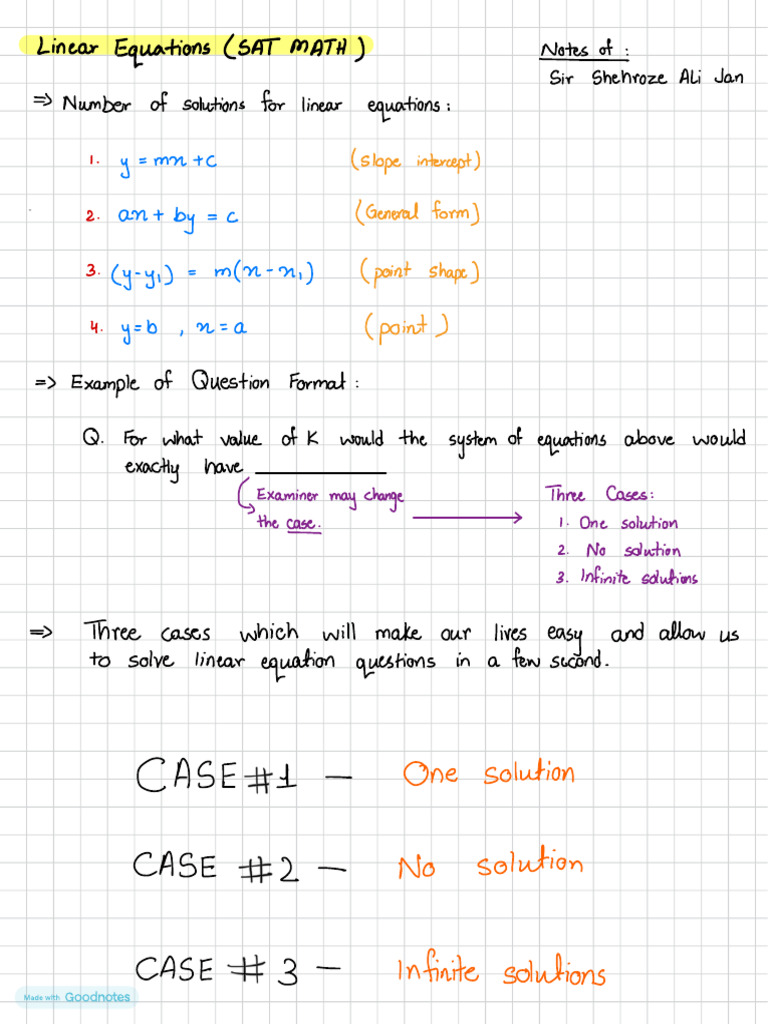 Linear Equations (SAT MATH)
Notes of :
Sir Shehroze Ali Jan
=> Number of solutions for linear equations:
1. y = mx + c (slope intercept)
2. ax + by = c (General form)
3. (y-y₁) = m(x-x₁) (point shape)
4. y=b , x=a (point)
=> Example of Question Format:
Q. For what value of K would the system of equations above would
exactly have ____________
Examiner may change
the case.
Three Cases:
1. One solution
2. No solution
3. Infinite solutions
=> Three cases which will make our lives easy and allow us
to solve linear equation questions in a few second.
CASE #1 — One solution
CASE #2 — No solution
CASE #3 — Infinite solutions
Made with Goodnotes